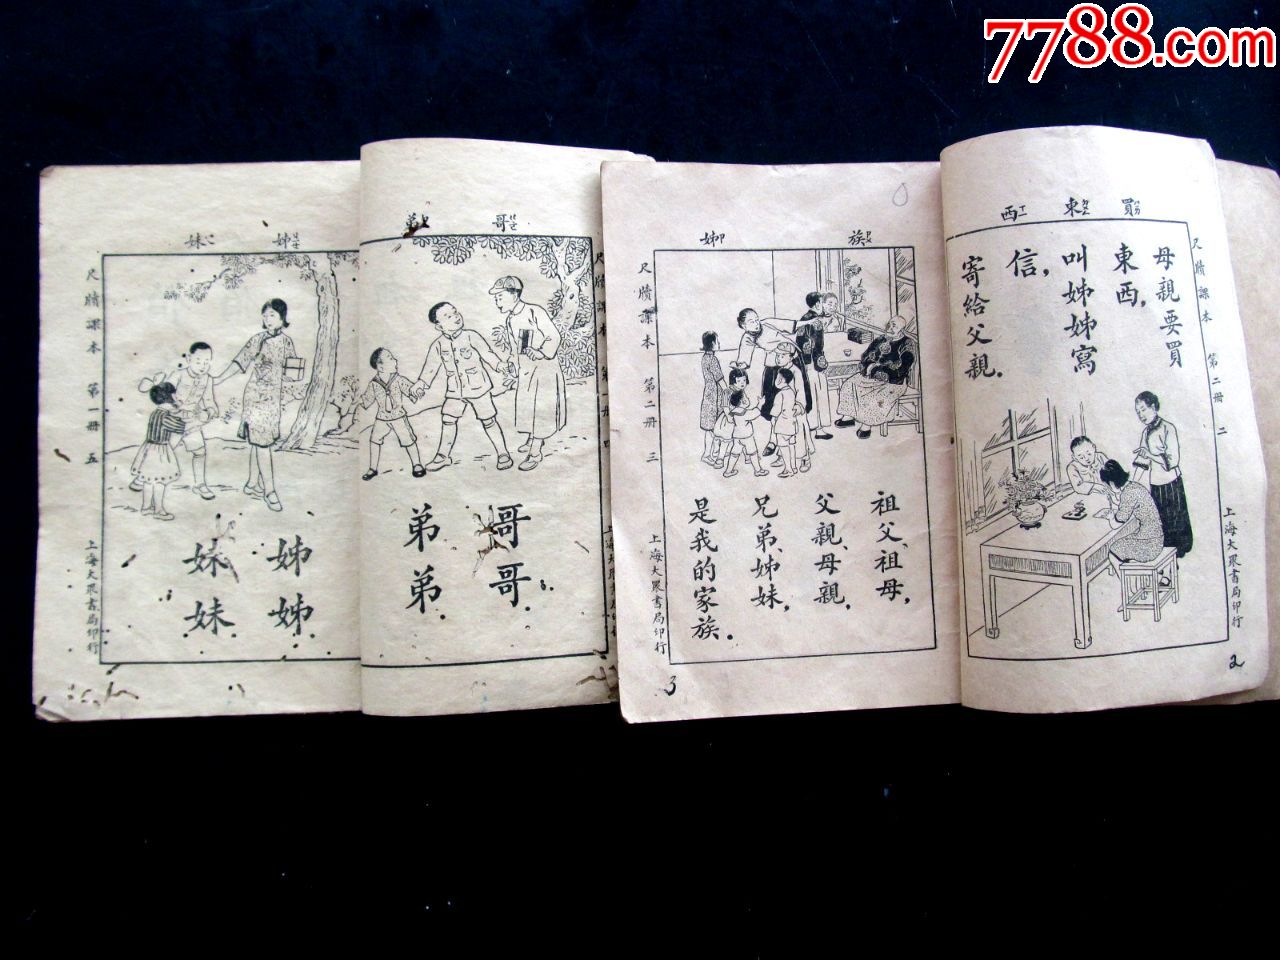 7788.com
買 東 西
母親要買
東西，
叫姊姊寫
信，
寄給父親．
尺牘課本 第二冊 二
上海大眾書局印行
2
族 姊
祖父、祖母，
父親、母親，
兄弟、姊妹，
是我的家族．
尺牘課本 第二冊 三
上海大眾書局印行
3
哥 弟
哥哥
弟弟
尺牘課本 第一冊 四
姊 妹
姊姊
妹妹
尺牘課本 第一冊 五
上海大眾書局印行